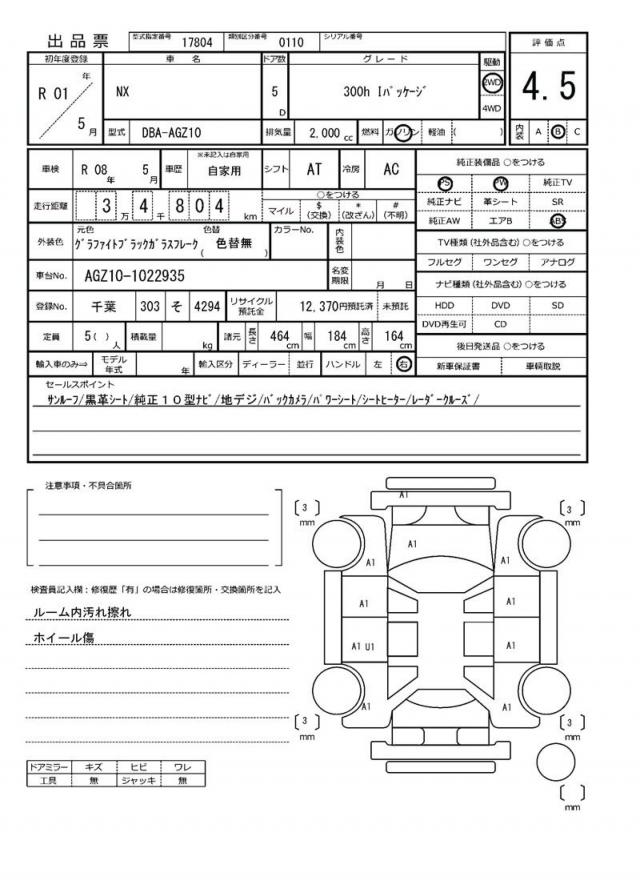 出品票 型式指定番号 17804 類別区分番号 0110 シリアル番号
初年度登録 車名 ドア数 グレード 駆動 評価点
R 01 年 5 月 NX 5 D 300h Iパッケージ 2WD 4WD 4.5
型式 DBA-AGZ10 排気量 2,000 cc 燃料 ガソリン 軽油 ( ) 内装 A B C
車検 R 08 年 5 月 車歴 ※未記入は自家用 自家用 シフト AT 冷房 AC
走行距離 3 万 4 千 8 0 4 km ○をつける マイル $ (交換) * (改ざん) # (不明)
外装色 元色 グラファイトブラックガラスフレーク 色替 ( 色替無 ) カラーNo. 内装色
車台No. AGZ10-1022935 名変期限 月 日
登録No. 千葉 303 そ 4294 リサイクル預託金 12,370円預託済 未預託
定員 5( ) 人 積載量 kg 諸元 長さ 464 cm 幅 184 cm 高さ 164 cm
輸入車のみ⇒ モデル年式 年 輸入区分 ディーラー 並行 ハンドル 左 右
純正装備品 ○をつける
PS PW 純正TV
純正ナビ 革シート SR
純正AW エアB ABS
TV種類 (社外品含む) ○をつける
フルセグ ワンセグ アナログ
ナビ種類 (社外品含む) ○をつける
HDD DVD SD
DVD再生可 CD
後日発送品 ○をつける
新車保証書 車輌取説
セールスポイント
サンルーフ/黒革シート/純正10型ナビ/地デジ/バックカメラ/パワーシート/シートヒーター/レーダークルーズ/
注意事項・不具合箇所
検査員記入欄：修復歴「有」の場合は修復箇所・交換箇所を記入
ルーム内汚れ擦れ
ホイール傷
ドアミラー キズ ヒビ ワレ
工具 無 ジャッキ 無
A1
[ 3 ] mm [ 3 ] mm
A1
A1 A1
A1 A1
A1 U1 A1
A1 A1
[ 3 ] mm [ 3 ] mm
[ ] mm